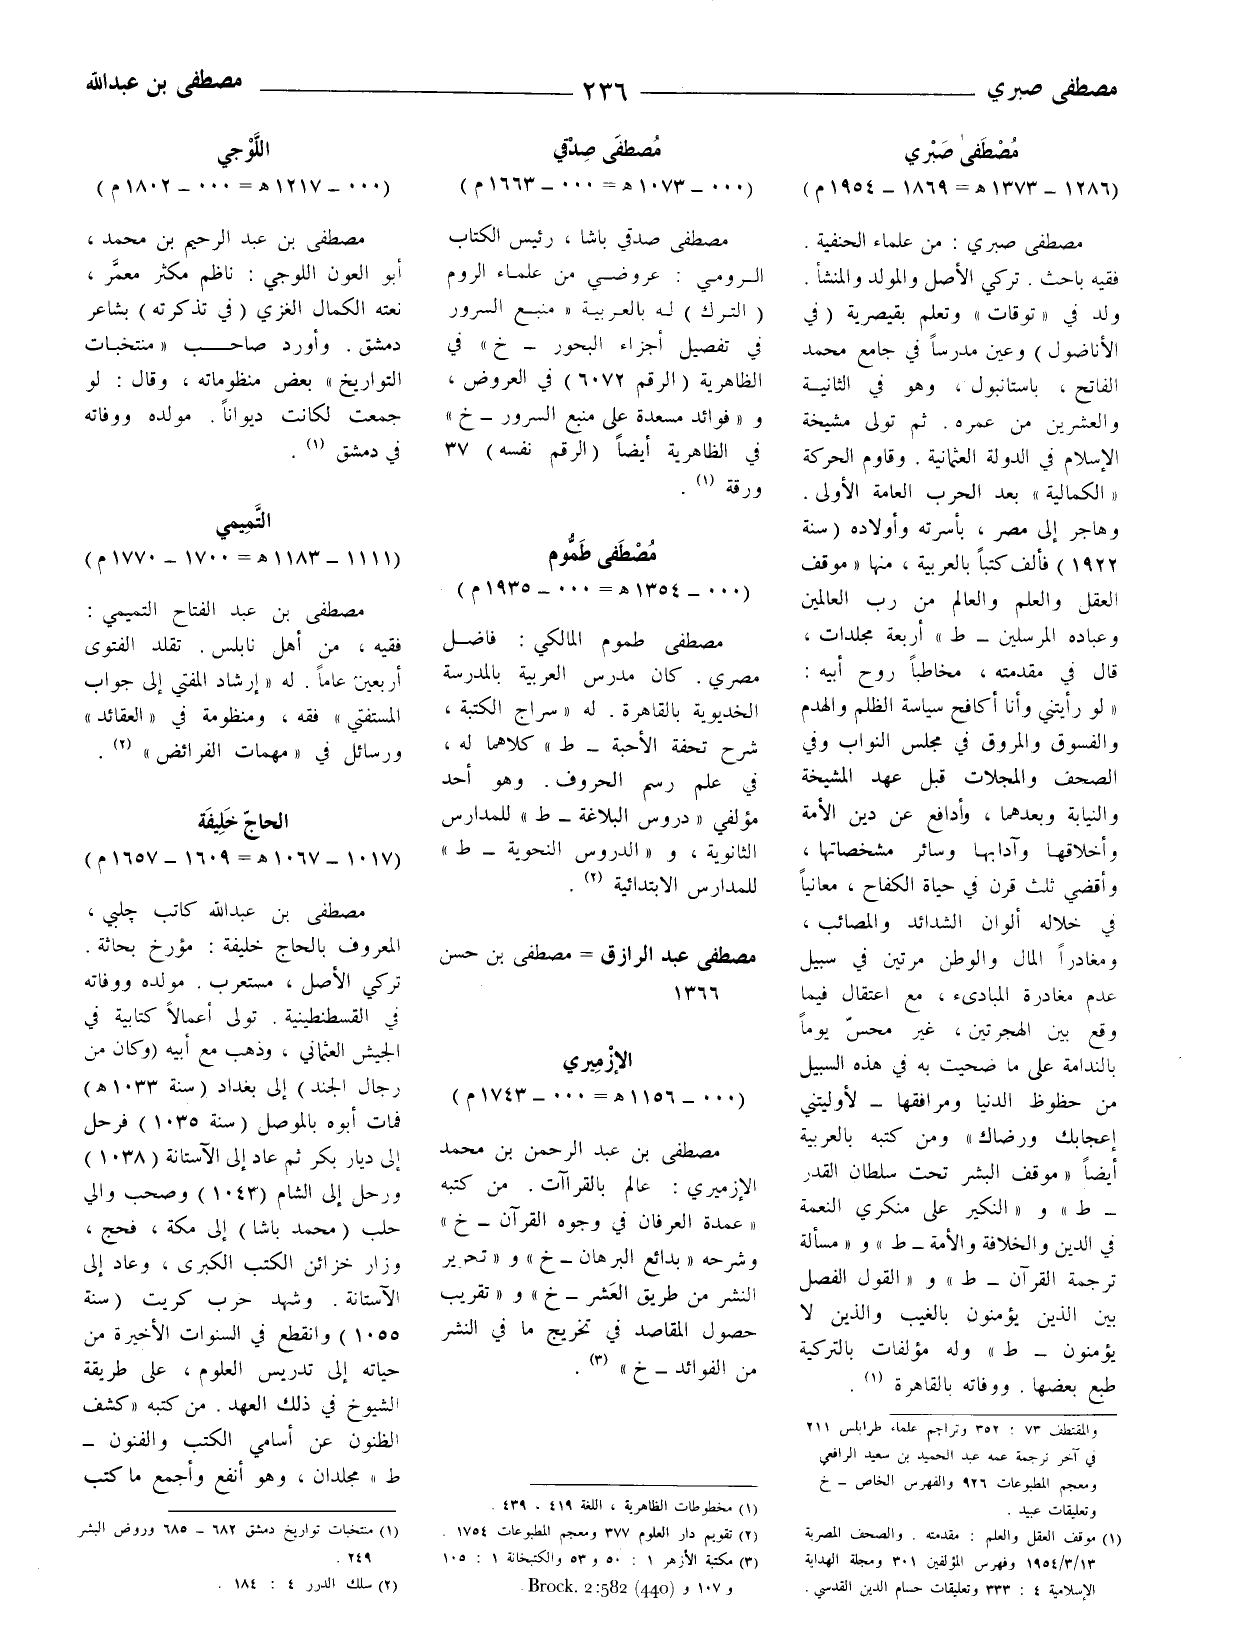 مصطفى صبري
٢٣٦
مصطفى بن عبدالله
مُصْطَفىٰ صَبْري
(١٢٨٦ - ١٣٧٣ ه = ١٨٦٩ - ١٩٥٤ م)
مصطفى صبري : من علماء الحنفية .
فقيه باحث . تركي الأصل والمولد والمنشأ .
ولد في « توقات » وتعلم بقيصرية ( في
الأناضول ) وعين مدرساً في جامع محمد
الفاتح ، باستانبول ، وهو في الثانية
والعشرين من عمره . ثم تولى مشيخة
الإسلام في الدولة العثمانية . وقاوم الحركة
« الكمالية » بعد الحرب العامة الأولى .
وهاجر إلى مصر ، بأسرته وأولاده ( سنة
١٩٢٢ ) فألف كتباً بالعربية ، منها « موقف
العقل والعلم والعالم من رب العالمين
وعباده المرسلين - ط » أربعة مجلدات ،
قال في مقدمته ، مخاطباً روح أبيه :
« لو رأيتني وأنا أكافح سياسة الظلم والهدم
والفسوق والمروق في مجلس النواب وفي
الصحف والمجلات قبل عهد المشيخة
والنيابة وبعدهما ، وأدافع عن دين الأمة
وأخلاقها وآدابها وسائر مشخصاتها ،
وأقضي ثلث قرن في حياة الكفاح ، معانياً
في خلاله ألوان الشدائد والمصائب ،
ومغادراً المال والوطن مرتين في سبيل
عدم مغادرة المبادىء ، مع اعتقال فيما
وقع بين الهجرتين ، غير محسّ يوماً
بالندامة على ما ضحيت به في هذه السبيل
من حظوظ الدنيا ومرافقها - لأوليتني
إعجابك ورضاك » ومن كتبه بالعربية
أيضاً « موقف البشر تحت سلطان القدر
- ط » و « النكير على منكري النعمة
في الدين والخلافة والأمة - ط » و « مسألة
ترجمة القرآن - ط » و « القول الفصل
بين الذين يؤمنون بالغيب والذين لا
يؤمنون - ط » وله مؤلفات بالتركية
طبع بعضها . ووفاته بالقاهرة (١) .
والمقتطف ٧٣ : ٣٥٢ وتراجم علماء طرابلس ٢١١
في آخر ترجمة عمه عبد الحميد بن سعيد الرافعي
ومعجم المطبوعات ٩٢٦ والفهرس الخاص - خ
وتعليقات عبيد .
(١) موقف العقل والعلم : مقدمته . والصحف المصرية
١٩٥٤/٣/١٣ وفهرس المؤلفين ٣٠١ ومجلة الهداية
الإسلامية ٤ : ٣٣٣ وتعليقات حسام الدين القدسي .
مُصطفَى صِدْقي
(٠٠٠ - ١٠٧٣ ه = ٠٠٠ - ١٦٦٣ م)
مصطفى صدقي باشا ، رئيس الكتاب
الرومي : عروضي من علماء الروم
( الترك ) له بالعربية « منبع السرور
في تفصيل أجزاء البحور - خ » في
الظاهرية ( الرقم ٦٠٧٢ ) في العروض ،
و « فوائد مسعدة على منبع السرور - خ »
في الظاهرية أيضاً ( الرقم نفسه ) ٣٧
ورقة (١) .
مُصْطَفى طَمُّوم
(٠٠٠ - ١٣٥٤ ه = ٠٠٠ - ١٩٣٥ م)
مصطفى طموم المالكي : فاضل
مصري . كان مدرس العربية بالمدرسة
الخديوية بالقاهرة . له « سراج الكتبة ،
شرح تحفة الأحبة - ط » كلاهما له ،
في علم رسم الحروف . وهو أحد
مؤلفي « دروس البلاغة - ط » للمدارس
الثانوية ، و « الدروس النحوية - ط »
للمدارس الابتدائية (٢) .
مصطفى عبد الرازق = مصطفى بن حسن
١٣٦٦
الإزْمِيري
(٠٠٠ - ١١٥٦ ه = ٠٠٠ - ١٧٤٣ م)
مصطفى بن عبد الرحمن بن محمد
الإزميري : عالم بالقراآت . من كتبه
« عمدة العرفان في وجوه القرآن - خ »
وشرحه « بدائع البرهان - خ » و « تحرير
النشر من طريق العَشر - خ » و « تقريب
حصول المقاصد في تخريج ما في النشر
من الفوائد - خ » (٣) .
(١) مخطوطات الظاهرية ، اللغة ٤١٩ ، ٤٣٩ .
(٢) تقويم دار العلوم ٣٧٧ ومعجم المطبوعات ١٧٥٤ .
(٣) مكتبة الأزهر ١ : ٥٠ و ٥٣ والكتبخانة ١ : ١٠٥
و ١٠٧ و Brock. 2:582 (440) .
اللَّوْجي
(٠٠٠ - ١٢١٧ ه = ٠٠٠ - ١٨٠٢ م)
مصطفى بن عبد الرحيم بن محمد ،
أبو العون اللوجي : ناظم مكثر معمَّر ،
نعته الكمال الغزي ( في تذكرته ) بشاعر
دمشق . وأورد صاحب « منتخبات
التواريخ » بعض منظوماته ، وقال : لو
جمعت لكانت ديواناً . مولده ووفاته
في دمشق (١) .
التَّمِيمي
(١١١١ - ١١٨٣ ه = ١٧٠٠ - ١٧٧٠ م)
مصطفى بن عبد الفتاح التميمي :
فقيه ، من أهل نابلس . تقلد الفتوى
أربعين عاماً . له « إرشاد المفتي إلى جواب
المستفتي » فقه ، ومنظومة في « العقائد »
ورسائل في « مهمات الفرائض » (٢) .
الحاجّ خَلِيفَة
(١٠١٧ - ١٠٦٧ ه = ١٦٠٩ - ١٦٥٧ م)
مصطفى بن عبدالله كاتب چلبي ،
المعروف بالحاج خليفة : مؤرخ بحاثة .
تركي الأصل ، مستعرب . مولده ووفاته
في القسطنطينية . تولى أعمالاً كتابية في
الجيش العثماني ، وذهب مع أبيه (وكان من
رجال الجند) إلى بغداد ( سنة ١٠٣٣ ه )
فمات أبوه بالموصل ( سنة ١٠٣٥ ) فرحل
إلى ديار بكر ثم عاد إلى الآستانة ( ١٠٣٨ )
ورحل إلى الشام (١٠٤٣) وصحب والي
حلب ( محمد باشا ) إلى مكة ، فحج ،
وزار خزائن الكتب الكبرى ، وعاد إلى
الآستانة . وشهد حرب كريت ( سنة
١٠٥٥ ) وانقطع في السنوات الأخيرة من
حياته إلى تدريس العلوم ، على طريقة
الشيوخ في ذلك العهد . من كتبه « كشف
الظنون عن أسامي الكتب والفنون -
ط » مجلدان ، وهو أنفع وأجمع ما كتب
(١) منتخبات تواريخ دمشق ٦٨٢ - ٦٨٥ وروض البشر
٢٤٩ .
(٢) سلك الدرر ٤ : ١٨٤ .